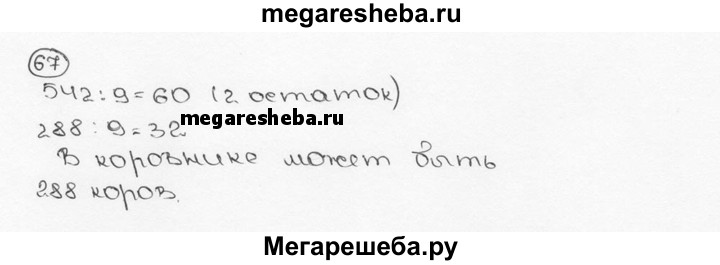 megaresheba.ru
67
542:9=60 (2 остаток)
288:9=32
megaresheba.ru
В коровнике может быть
288 коров.
Мегарешеба.ру